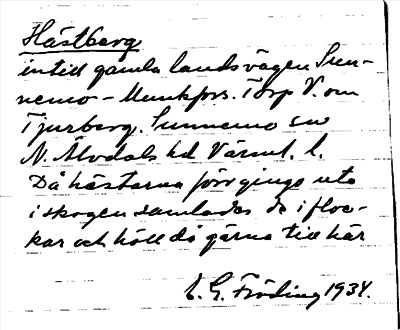 Hästberg
intill gamla landsvägen Sun-
nemo – Munkfors. Torp V. om
Tjurberg. Sunnemo sn
N. Älvdals hd Värml. l.
Då hästarna förr gingo ute
i skogen samlades de i floc-
kar och höll då gärna till här
E. G. Fröding 1934.